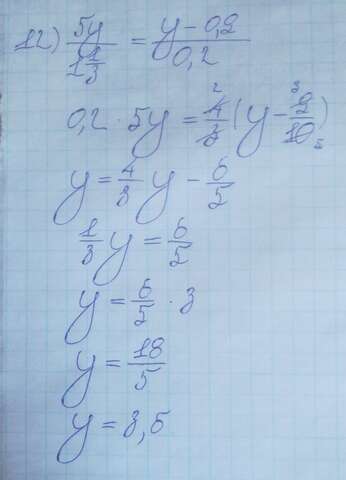 12) 5y / 1 1/3 = y - 0,9 / 0,2
0,2 · 5y = 4/3 (y - 9/10) 2 3 5
y = 4/3 y - 6/5
1/3 y = 6/5
y = 6/5 · 3
y = 18/5
y = 3,5